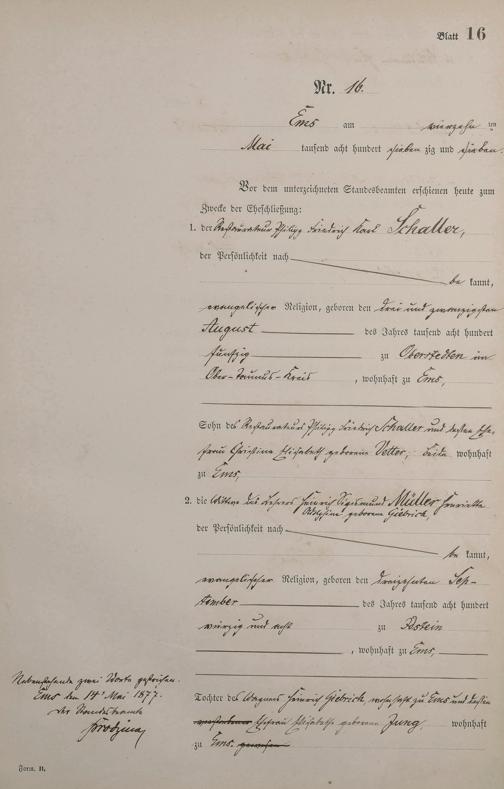 Blatt 16
Nr. 16.
Ems am vierzehn ten
Mai tausend acht hundert sieben zig und sieben.
Vor dem unterzeichneten Standesbeamten erschienen heute zum
Zwecke der Eheschließung:
1. der Restaurateur Philipp Friedrich Karl Schaller,
der Persönlichkeit nach
be kannt,
evangelischer Religion, geboren den drei und zwanzigsten
August des Jahres tausend acht hundert
fünfzig zu Oberstedten im
Ober-Taunus-Kreis, wohnhaft zu Ems,
Sohn des Restaurateurs Philipp Friedrich Schaller und dessen Ehe-
frau Christine Elisabeth geborene Vetter, beide wohnhaft
zu Ems,
2. die Wittwe des Lehrers Heinrich Sigesmund Müller Henriette
geborene Giebrich,
der Persönlichkeit nach
be kannt,
evangelischer Religion, geboren den dreizehnten Sep-
tember des Jahres tausend acht hundert
vierzig und acht zu Idstein
, wohnhaft zu Ems,
Tochter des Wagners Heinrich Giebrich, wohnhaft zu Ems und dessen
verstorbener Ehefrau Elisabeth geborene Jung wohnhaft
zu Ems. gewesen
Nebenstehende zwei Worte gestrichen.
Ems den 14t Mai 1877.
Der Standesbeamte
Form. B.